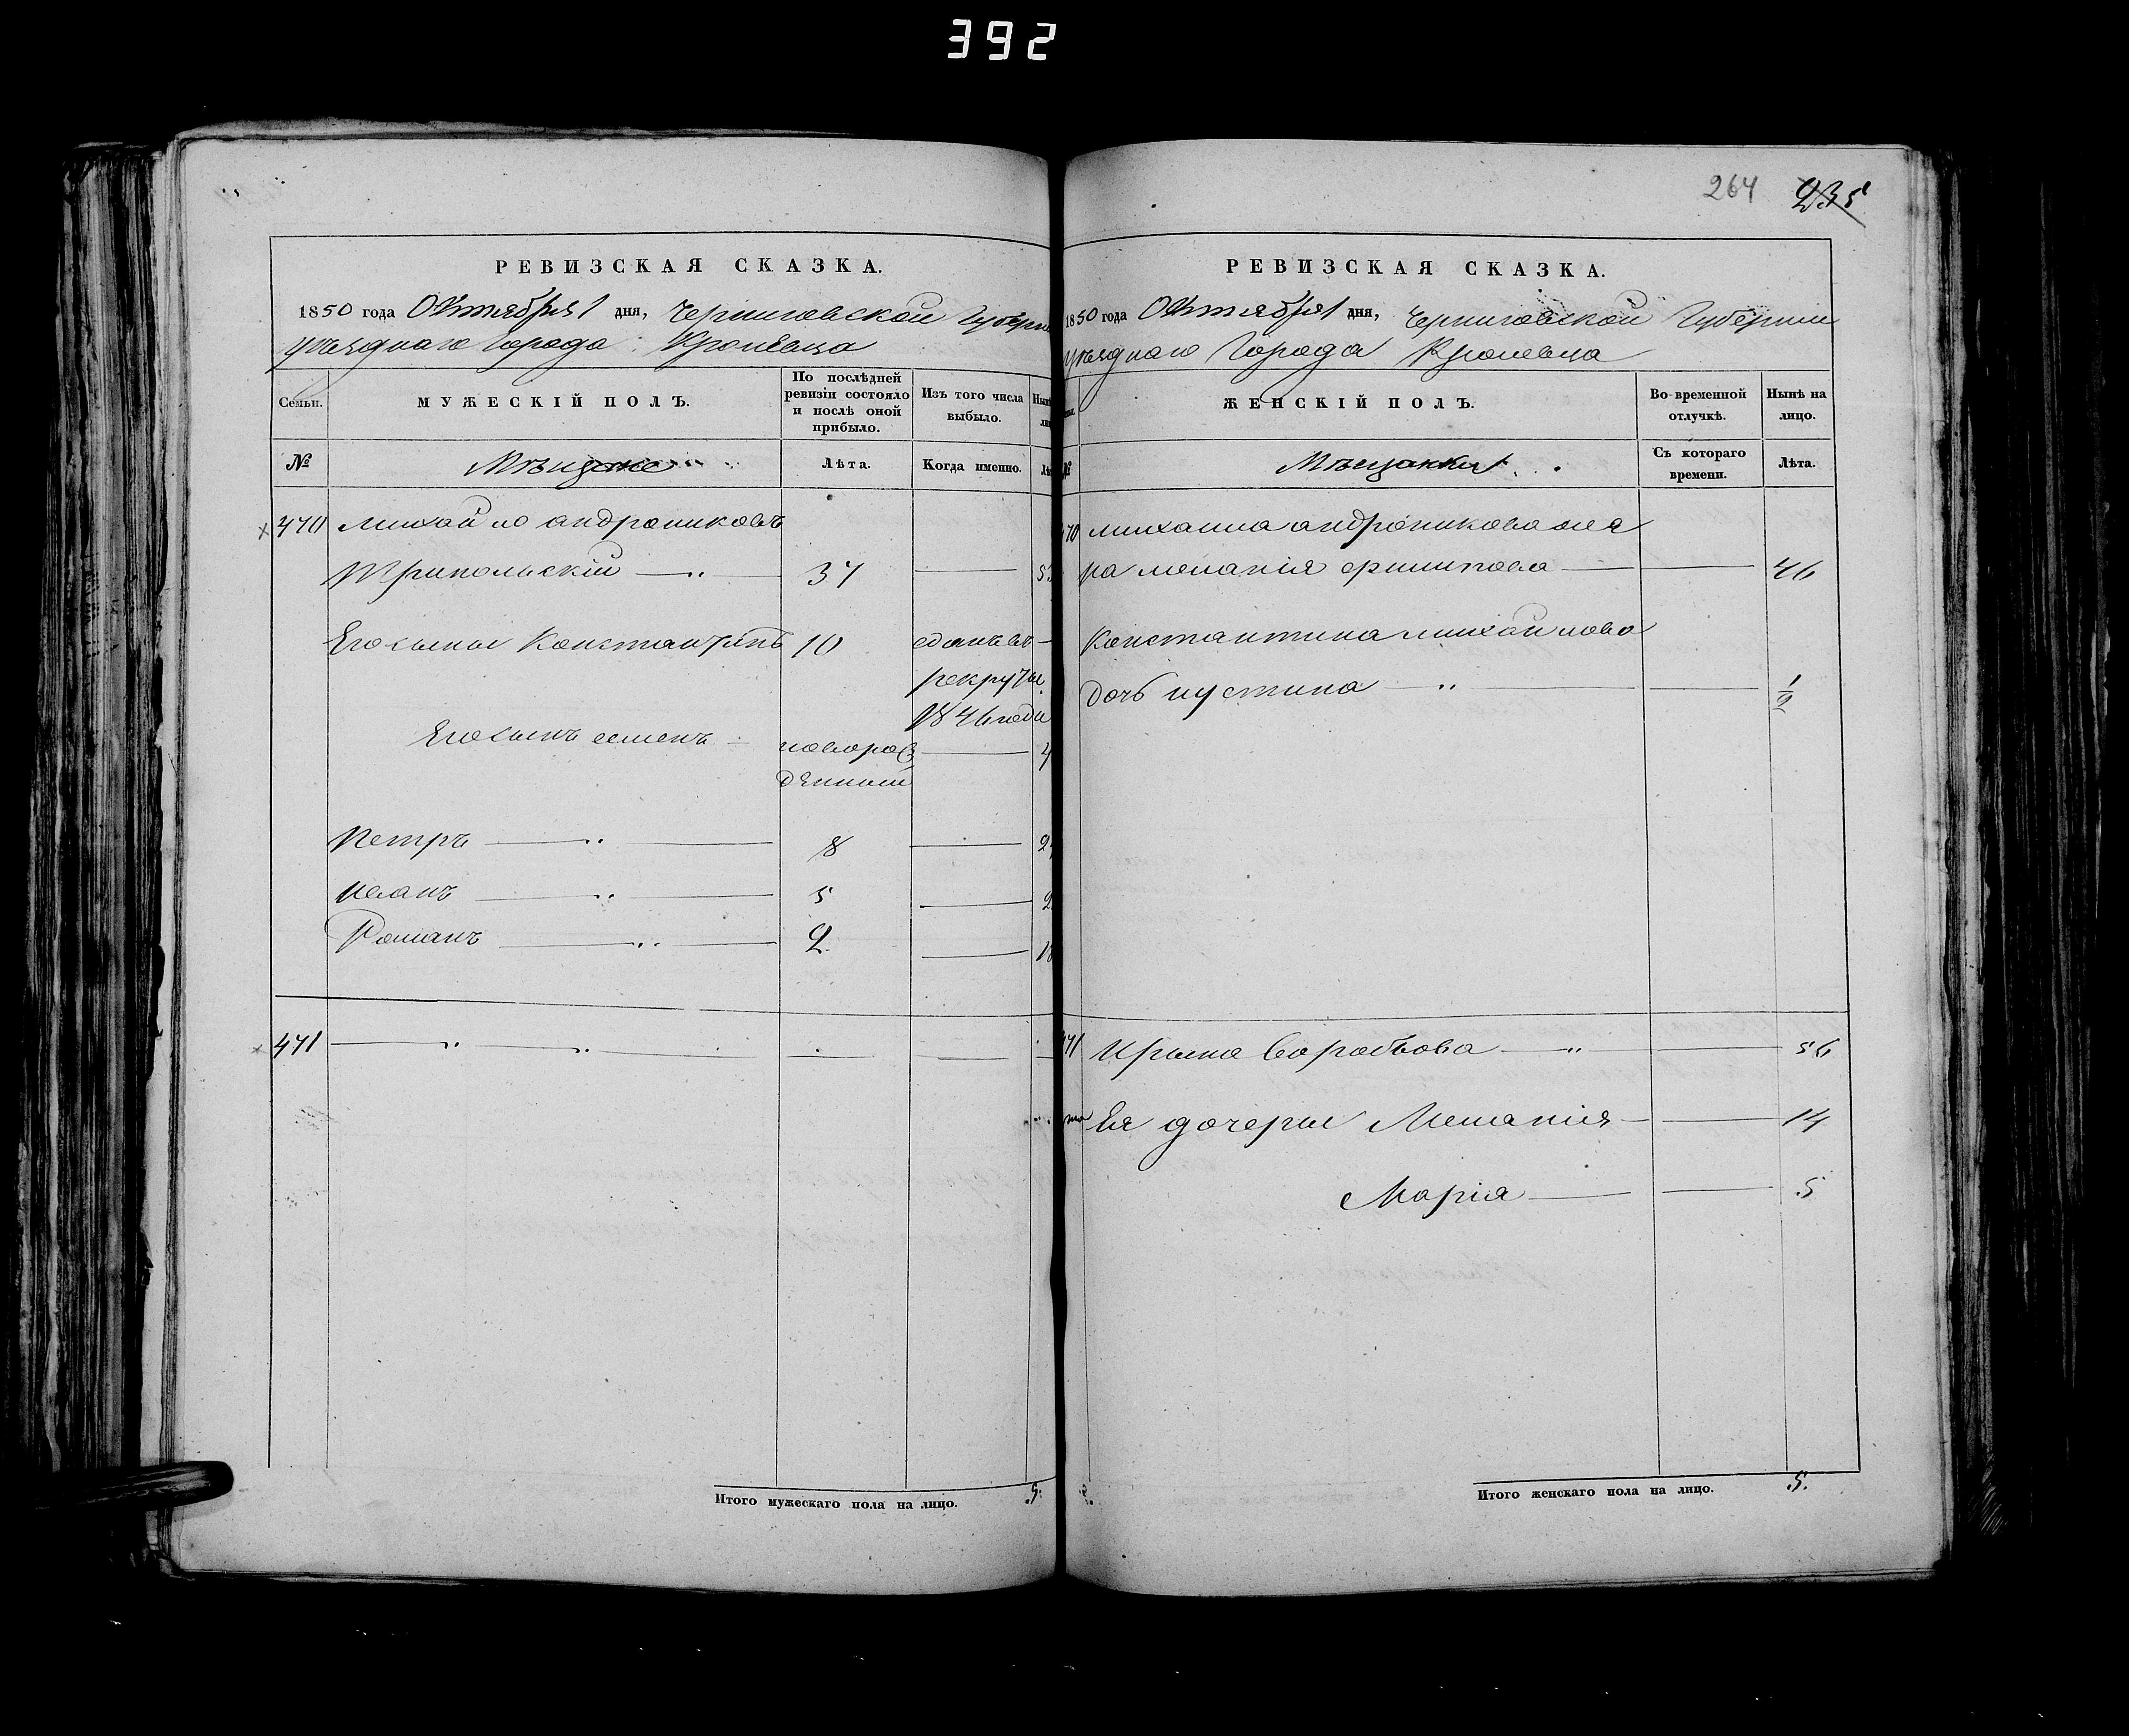 392
РЕВИЗСКАЯ СКАЗКА.
1850 года Октября 1 дня, Черниговской Губерни
уѣзднаго Города Кролевца
Семьи.
МУЖЕСКІЙ ПОЛЪ.
По послѣдней ревизіи состояло и послѣ оной прибыло.
Изъ того числа выбыло.
№
Мѣщане
Лѣта.
Когда именно.
470 михайло андрониковъ
Трипольскій 37
Его сыны Константинъ 10 сданъ въ
рекруты
1846 года
Его сынъ семенъ новорож
денный
Петръ 8
иванъ 5
Романъ 2
471
Итого мужескаго пола на лицо. 5.
264 235
РЕВИЗСКАЯ СКАЗКА.
1850 года Октября 1 дня, Черниговской Губерніи
уѣзднаго Города Кролевца
ЖЕНСКІЙ ПОЛЪ.
Во временной отлучкѣ.
Нынѣ на лицо.
Мѣщанки
Съ котораго времени.
Лѣта.
михайла андроникова же
на меланія филипова 46
Константина михайлова
дочь иустина 1/2
Ирина Воробьова 56
Ея дочеры Меланія 14
Марія 5
Итого женскаго пола на лицо. 5.